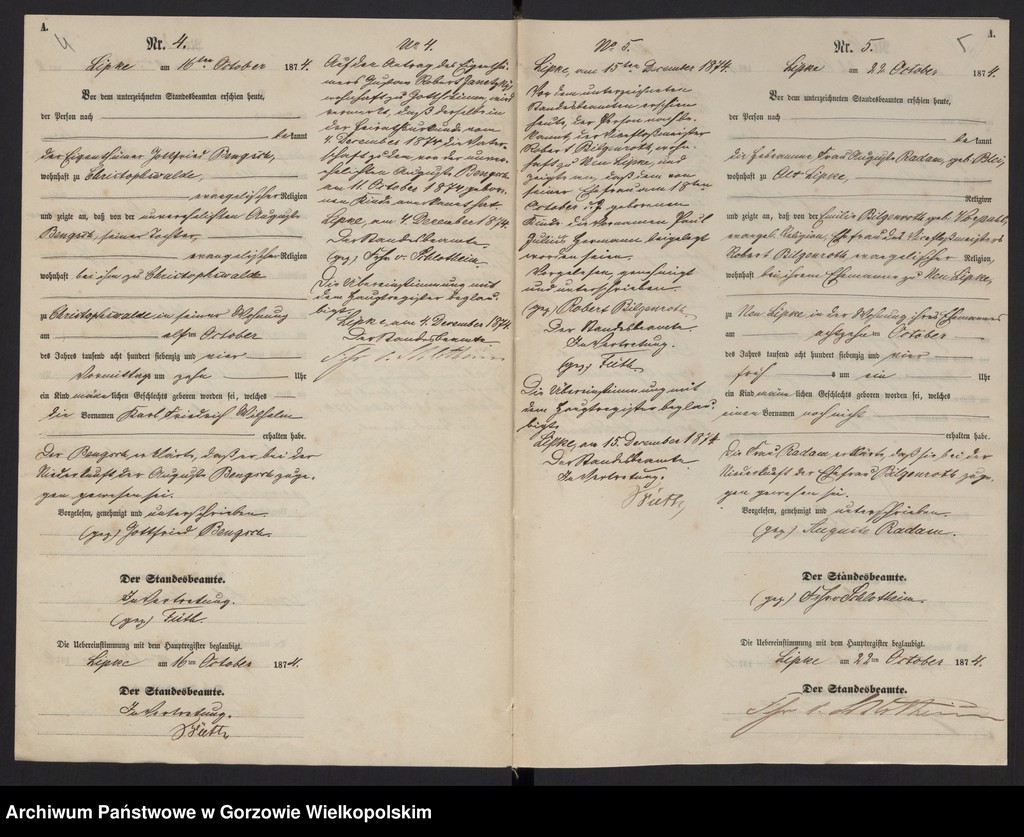 A.
4
Nr. 4.
Lipke am 16ten October 1874.
Vor dem unterzeichneten Standesbeamten erschien heute,
der Person nach
bekannt
der Eigenthümer Gottfried Bengsch,
wohnhaft zu Christophswalde,
evangelischer Religion
und zeigte an, daß von der unverehelichten Auguste
Bengsch, seiner Tochter,
evangelischer Religion
wohnhaft bei ihm zu Christophswalde
zu Christophswalde in seiner Wohnung
am elften October
des Jahres tausend acht hundert siebenzig und vier
Vormittags um zehn Uhr
ein Kind männlichen Geschlechts geboren worden sei, welches
die Vornamen Karl Friedrich Wilhelm
erhalten habe.
Der Bengsch erklärte, daß er bei der
Niederkunft der Auguste Bengsch zuge-
gen gewesen sei.
Vorgelesen, genehmigt und unterschrieben.
(gez) Gottfried Bengsch.
Der Standesbeamte.
In Vertretung.
(gez) Füth.
Die Uebereinstimmung mit dem Hauptregister beglaubigt.
Lipke am 16ten October 1874.
Der Standesbeamte.
In Vertretung.
Füth
Nr 4.
Auf den Antrag des Eigenthü-
mers Gustav Robert
zu wird
vermerkt, daß derselbe in
der Heirathsurkunde vom
4. December 1874 die Vater-
schaft zu dem von der unver-
ehelichten Auguste Bengsch
am 11. October 1874 gebore-
nen Kinde anerkannt hat.
Lipke, am 4. December 1874.
Der Standesbeamte.
(gez) Frhr v. Schlotheim.
Die Übereinstimmung mit
dem Hauptregister beglau-
bigt
Lipke, am 4. December 1874
Der Standesbeamte.
Frhr v. Schlotheim
No 5.
Lipke, am 15ten December 1874.
Vor dem unterzeichneten
Standesbeamten erschien
heute, der Person nach be-
kannt, der
Robert Bilgenroth, wohn-
haft zu Neu Lipke, und
zeigte an, daß dem von
seiner Ehefrau am 18ten
October d. J. geborenen
Kinde die Vornamen Paul
Julius Hermann beigelegt
worden seien.
Vorgelesen, genehmigt
und unterschrieben.
(gez) Robert Bilgenroth.
Der Standesbeamte.
In Vertretung.
(gez) Füth.
Die Übereinstimmung mit
dem Hauptregister beglau-
bigt.
Lipke, am 15. December 1874
Der Standesbeamte
In Vertretung.
Füth
A.
5
Nr. 5.
Lipke am 22 October 1874.
Vor dem unterzeichneten Standesbeamten erschien heute,
der Person nach
bekannt
die Hebeamme Frau Auguste Radam, geb.
wohnhaft zu Alt Lipke,
Religion
und zeigte an, daß von der Emilie Bilgenroth geb.
evangel. Religion, Ehefrau des
Robert Bilgenroth, evangelischer Religion,
wohnhaft bei ihrem Ehemanne zu Neu Lipke,
zu Neu Lipke in der Wohnung ihres Ehemannes
am achtzehnten October
des Jahres tausend acht hundert siebenzig und vier
früh um ein Uhr
ein Kind männlichen Geschlechts geboren worden sei, welches
einen Vornamen noch nicht
erhalten habe.
Die Frau Radam erklärte, daß sie bei der
Niederkunft der Ehefrau Bilgenroth zuge-
gen gewesen sei.
Vorgelesen, genehmigt und unterschrieben.
(gez) Auguste Radam.
Der Standesbeamte.
(gez) Frhr v Schlotheim.
Die Uebereinstimmung mit dem Hauptregister beglaubigt.
Lipke am 22ten October 1874.
Der Standesbeamte.
Frhr v. Schlotheim
Archiwum Państwowe w Gorzowie Wielkopolskim